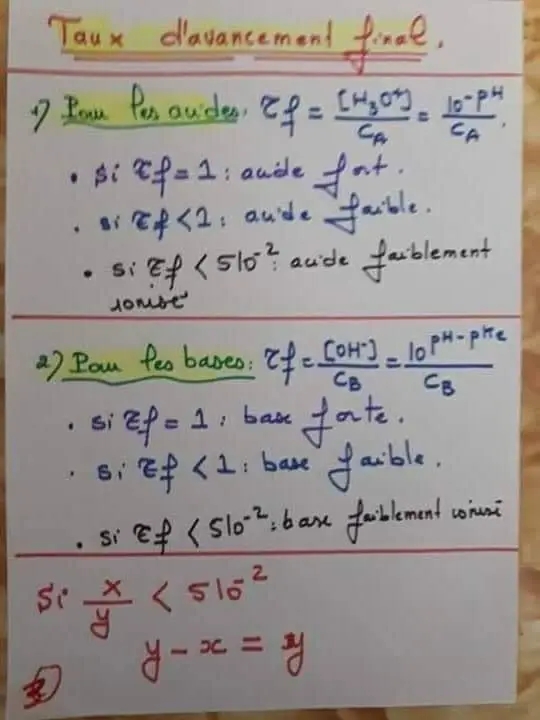 Taux d'avancement final.
1) Pour les acides. τf = [H₃O⁺]/C_A = 10^-pH/C_A.
• Si τf = 1 : acide fort.
• si τf < 1 : acide faible.
• si τf < 5 10⁻² : acide faiblement
ionisé
2) Pour les bases : τf = [OH⁻]/C_B = 10^pH-pKe/C_B
• si τf = 1 : base forte.
• si τf < 1 : base faible.
• si τf < 5 10⁻² : base faiblement ionisé
Si x/y < 5 10⁻²
y - x = y